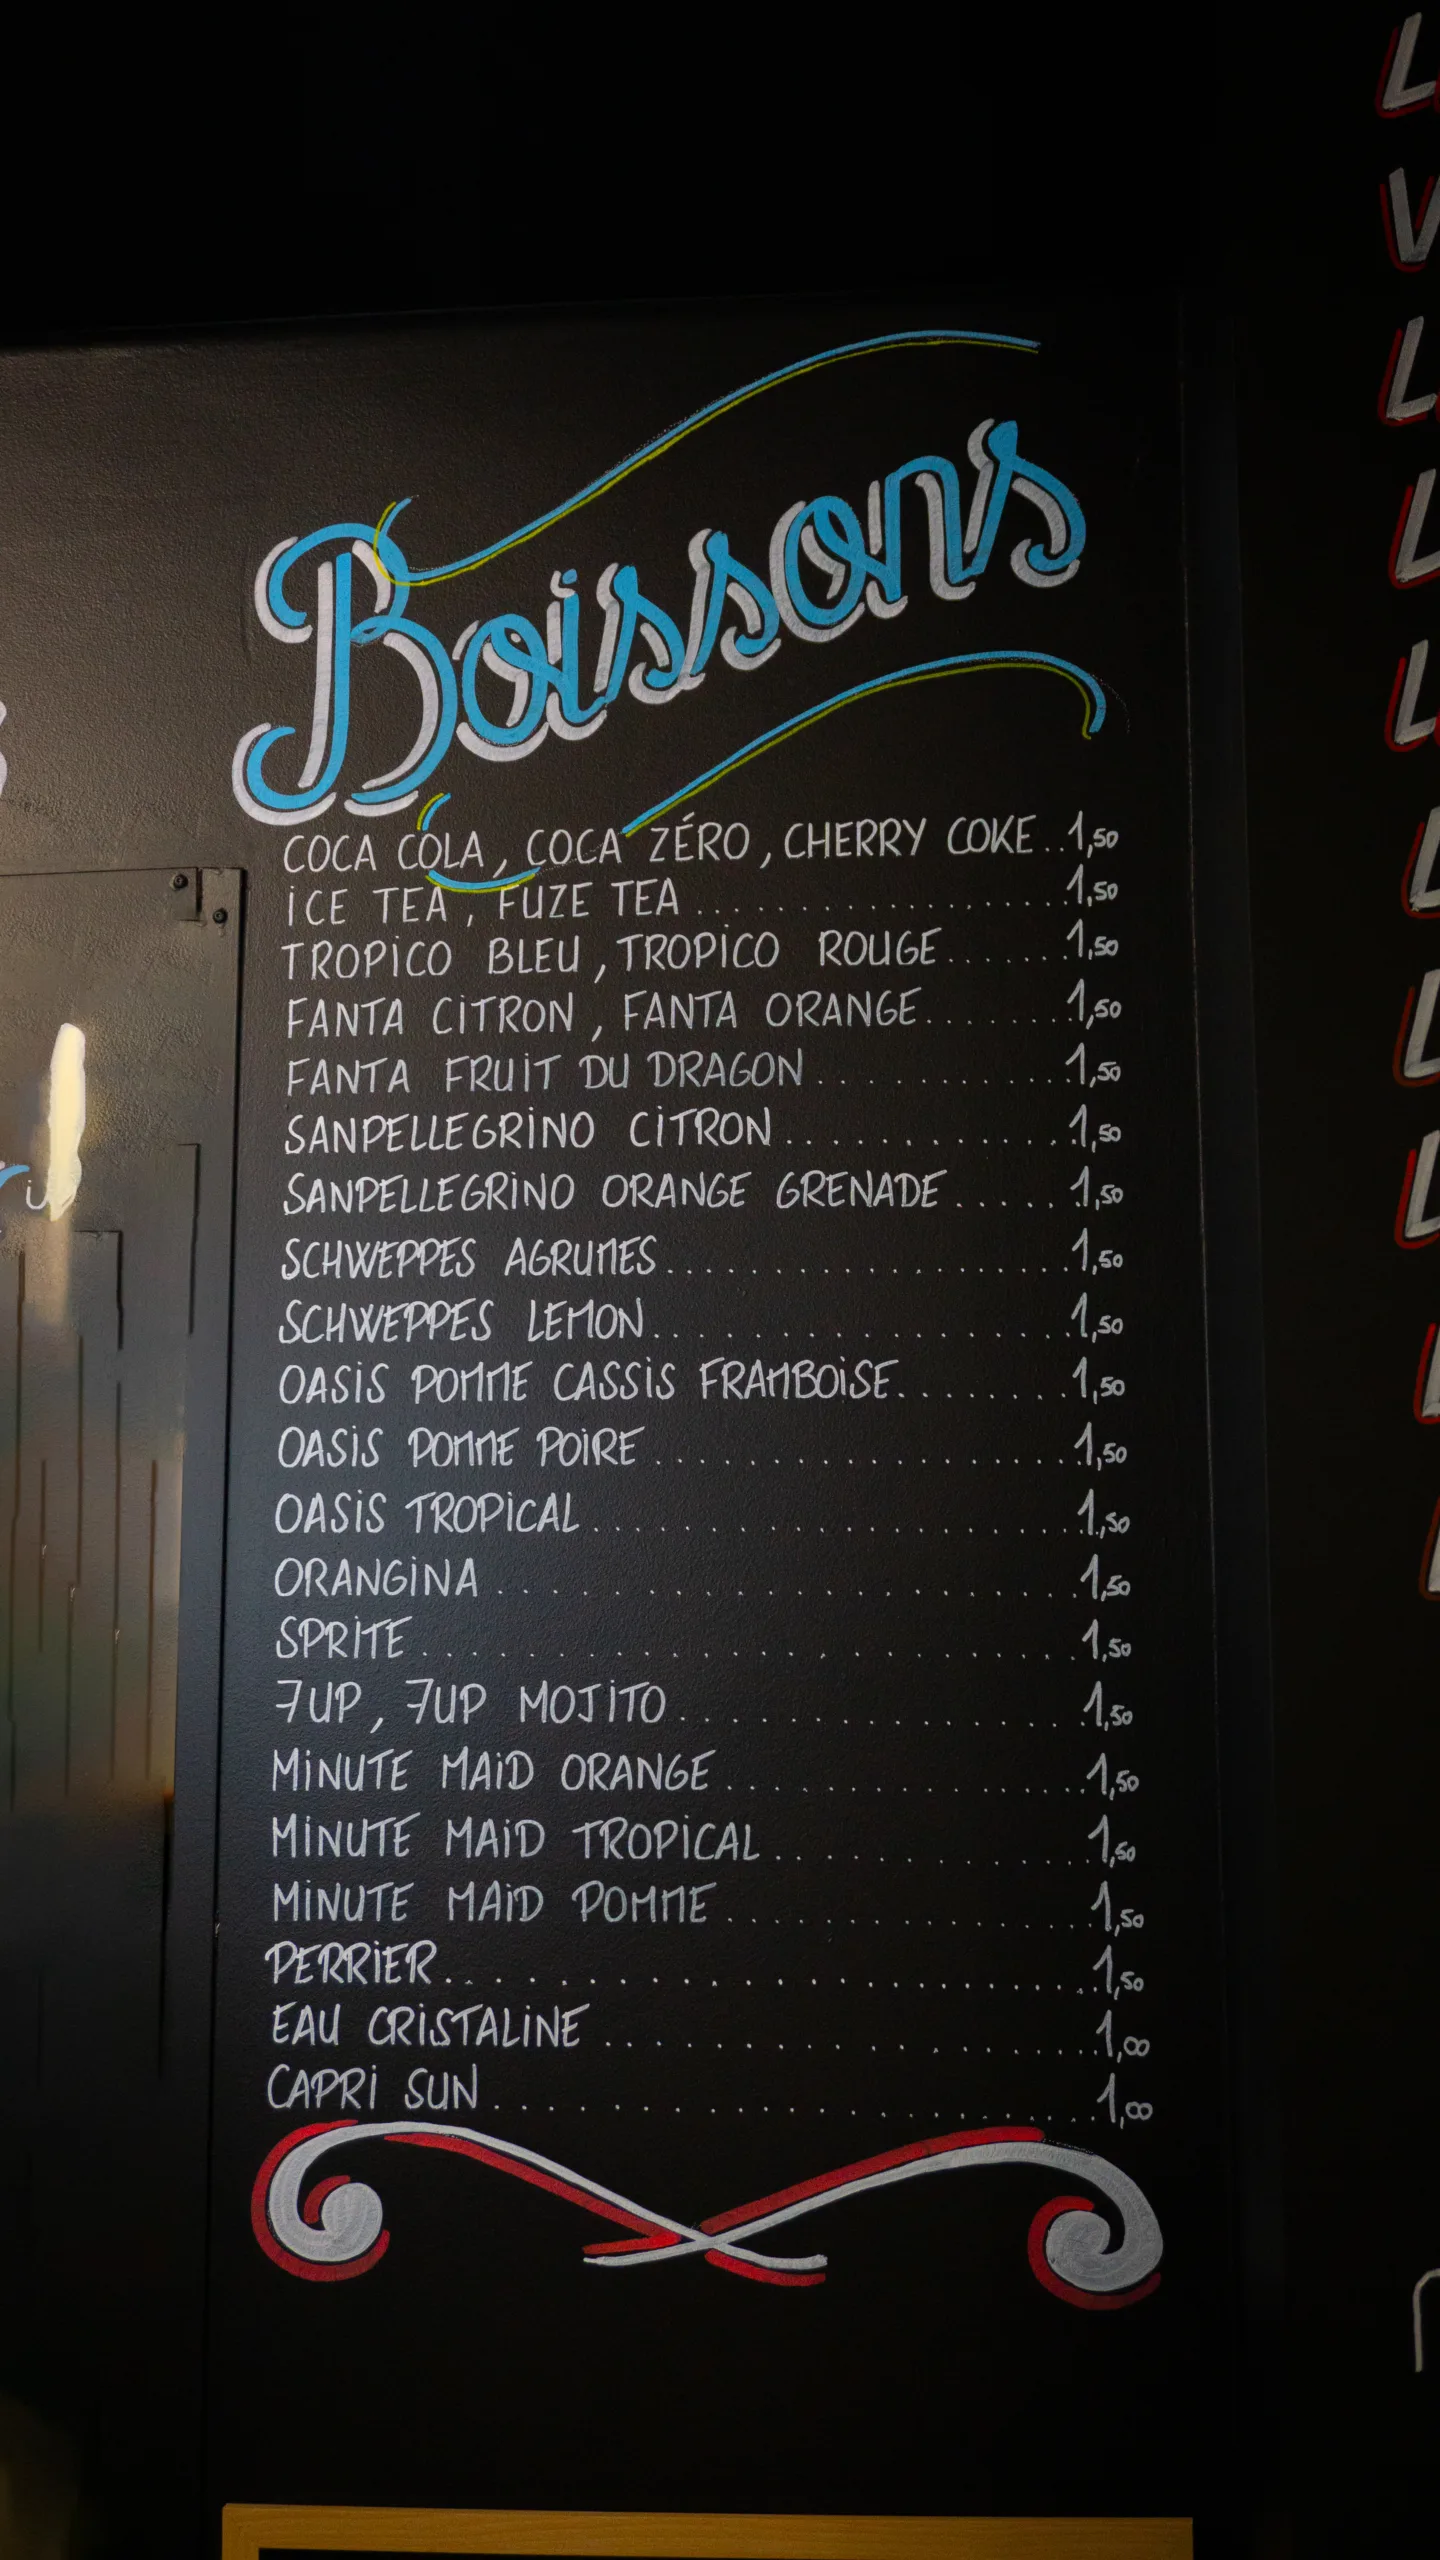 Boissons
COCA COLA, COCA ZÉRO, CHERRY COKE..1,50
ICE TEA, FUZE TEA ................... 1,50
TROPICO BLEU, TROPICO ROUGE.......1,50
FANTA CITRON, FANTA ORANGE........1,50
FANTA FRUIT DU DRAGON............1,50
SANPELLEGRINO CITRON.............1,50
SANPELLEGRINO ORANGE GRENADE.....1,50
SCHWEPPES AGRUMES..................1,50
SCHWEPPES LEMON...................1,50
OASIS POMME CASSIS FRAMBOISE........1,50
OASIS POMME POIRE..................1,50
OASIS TROPICAL....................1,50
ORANGINA ......................1,50
SPRITE.........................1,50
7UP, 7UP MOJITO................1,50
MINUTE MAID ORANGE..............1,50
MINUTE MAID TROPICAL............1,50
MINUTE MAID POMME..............1,50
PERRIER.......................1,50
EAU CRISTALINE ..................1,00
CAPRI SUN......................1,00